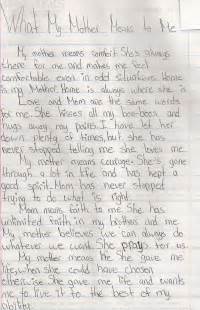 What My Mother Means to Me
My mother means comfort. She's always
there for me and makes me feel
comfortable even in odd situations. Home
is my Mother. Home is always where she is.
Love and Mom are the same words
for me. She kisses all my boo-boos and
hugs away my pains. I have let her
down plenty of times, but she has
never stopped telling me she loves me.
My mother means courage. She's gone
through a lot in life and has kept a
good spirit. Mom has never stopped
trying to do what is right.
Mom means faith to me. She has
unlimited faith in my brothers and me.
My mother believes we can always do
whatever we want. She prays for us.
My mother means life. She gave me
life, when she could have chosen
otherwise. She gave me life and wants
me to live it to the best of my
ability.